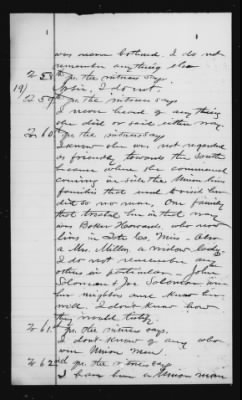 was never bothered. I do not
remember anything else
To 58th qr. the witness says
19) Ans. I do not.
To 59th qr. the witness says
I never heard of any thing
she did or said either way
To 60th qr. the witness says
I know she was not regarded
as friendly towards the South
because when she commenced
coming in side the Union lines
families that used to visit her
did so no more. One family
that treated her in that way
was Baker Howards, who now
lives in Tate Co, Miss - Also
a Mrs. Miller, a widow lady
I do not remember any
others in particular - John
Solomon & Joe Solomon were
her neighbors and knew her
well. I don't know how
they would testify.
To 61st qr. the witness says.
I don't know of any who
were Union men.
To 62nd qr. the witness says
I have been a Union man